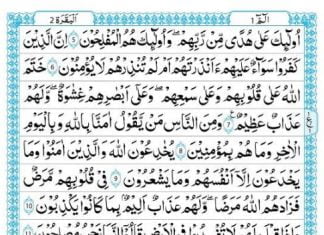 البقرة ٢ الٓمّٓ ١
اُولٰٓئِكَ عَلٰی هُدًی مِّنْ رَّبِّهِمْ ۗ وَاُولٰٓئِكَ هُمُ الْمُفْلِحُوْنَ ۝٥ اِنَّ الَّذِیْنَ
كَفَرُوْا سَوَآءٌ عَلَیْهِمْ ءَاَنْذَرْتَهُمْ اَمْ لَمْ تُنْذِرْهُمْ لَا یُؤْمِنُوْنَ ۝٦ خَتَمَ
اللّٰهُ عَلٰی قُلُوْبِهِمْ وَعَلٰی سَمْعِهِمْ ؕ وَعَلٰۤی اَبْصَارِهِمْ غِشَاوَةٌ ؗ وَّلَهُمْ
عَذَابٌ عَظِیْمٌ ۝٧ وَمِنَ النَّاسِ مَنْ یَّقُوْلُ اٰمَنَّا بِاللّٰهِ وَبِالْیَوْمِ
الْاٰخِرِ وَمَا هُمْ بِمُؤْمِنِیْنَ ۝٨ یُخٰدِعُوْنَ اللّٰهَ وَالَّذِیْنَ اٰمَنُوْا وَمَا
یَخْدَعُوْنَ اِلَّاۤ اَنْفُسَهُمْ وَمَا یَشْعُرُوْنَ ۝٩ فِیْ قُلُوْبِهِمْ مَّرَضٌ
فَزَادَهُمُ اللّٰهُ مَرَضًا ۚ وَلَهُمْ عَذَابٌ اَلِیْمٌۢ بِمَا كَانُوْا یَكْذِبُوْنَ ۝١٠